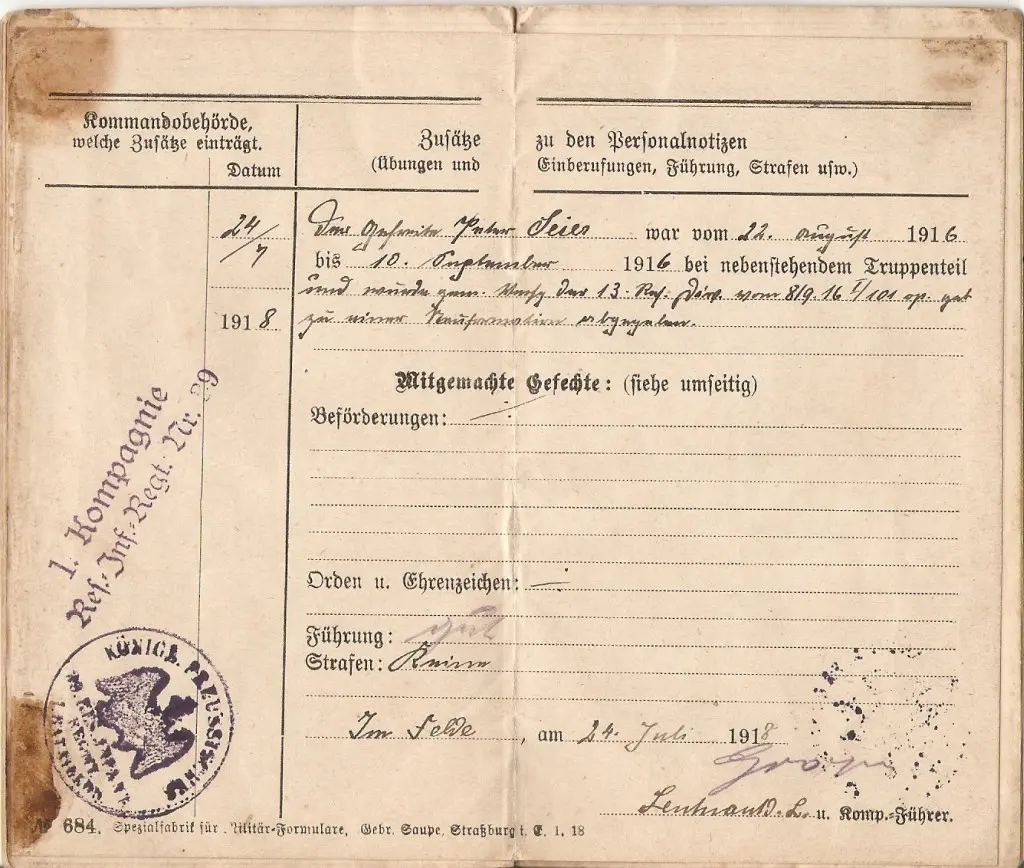 Kommandobehörde,
welche Zusätze einträgt.
Datum
Zusätze zu den Personalnotizen
(Übungen und Einberufungen, Führung, Strafen usw.)
24/7
1918
Der Gefreite Peter Seier war vom 22. August 1916
bis 10. September 1916 bei nebenstehendem Truppenteil
und wurde gem. Verfg der 13. Res. Div. vom 8/9 16 I/101 op. geh
zu einer Neuformation abgegeben.
Mitgemachte Gefechte: (siehe umseitig)
Beförderungen: ./.
1. Kompagnie
Res.-Inf.-Regt. Nr. 39
Orden u. Ehrenzeichen: ./.
Führung: gut
Strafen: Keine
KÖNIGL. PREUSSISCHES
Im Felde, am 24. Juli 1918
Leutnant d. L. u. Komp.-Führer.
№ 684. Spezialfabrik für Militär-Formulare, Gebr. Saupe, Straßburg i. E. 1. 18